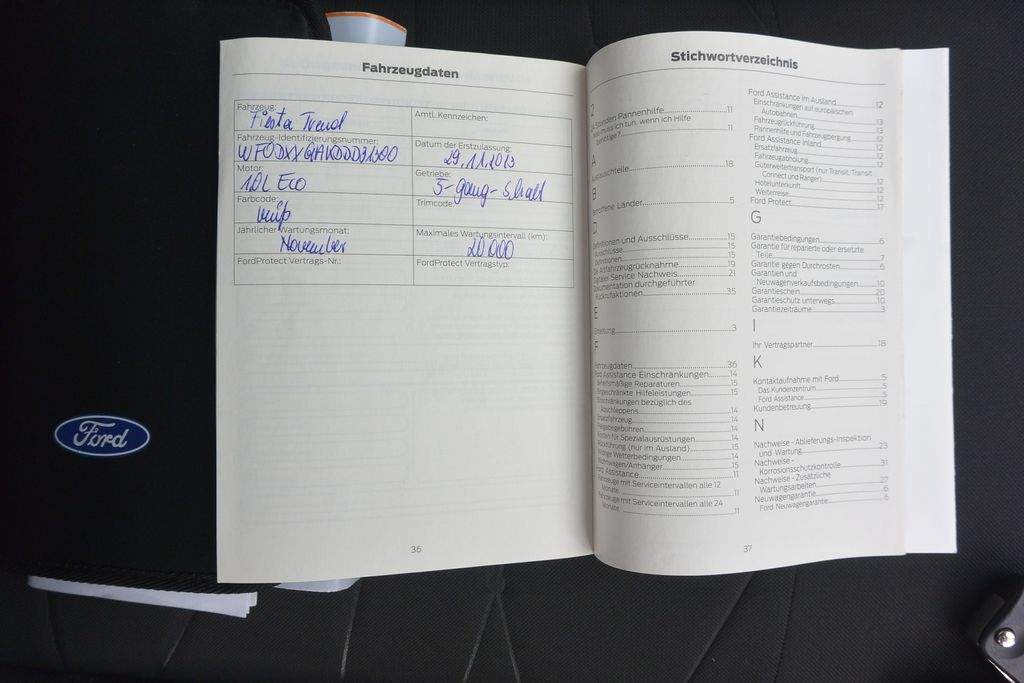 Fahrzeugdaten
Fahrzeug:
Fiesta Trend
Amtl. Kennzeichen:
Fahrzeug-Identifizierungsnummer:
Datum der Erstzulassung:
29.11.2013
Motor:
1.0L Eco
Getriebe:
5-gang-Schalt
Farbcode:
weiß
Trimcode:
Jährlicher Wartungsmonat:
November
Maximales Wartungsintervall (km):
20 000
FordProtect Vertrags-Nr.:
FordProtect Vertragstyp:
36
Ford
Stichwortverzeichnis
2
Stunden Pannenhilfe 11
ich tun, wenn ich Hilfe
benötige? 11
A
Austauschteile 18
B
Betroffene Länder 5
D
Definitionen und Ausschlüsse 15
Ausschlüsse 15
Definitionen 15
Altfahrzeugrücknahme 19
Digitaler Service Nachweis 21
Dokumentation durchgeführter
Rückrufaktionen 35
E
Einleitung 3
F
Fahrzeugdaten 36
Ford Assistance Einschränkungen 14
Behelfsmäßige Reparaturen 15
Eingeschränkte Hilfeleistungen 15
Einschränkungen bezüglich des
Abschleppens 14
Ersatzfahrzeug 14
Freigabegebühren 14
Kosten für Spezialausrüstungen 14
Rückführung (nur im Ausland) 15
Widrige Wetterbedingungen 14
Wohnwagen/Anhänger 15
Ford Assistance 11
Fahrzeuge mit Serviceintervallen alle 12
Monate 11
Fahrzeuge mit Serviceintervallen alle 24
Monate 11
Ford Assistance im Ausland 12
Einschränkungen auf europäischen
Autobahnen 12
Fahrzeugrückführung 13
Pannenhilfe und Fahrzeugbergung 13
Ford Assistance Inland 12
Ersatzfahrzeug 12
Fahrzeugabholung 12
Güterweitertransport (nur Transit, Transit
Connect und Ranger) 12
Hotelunterkunft 12
Weiterreise 12
Ford Protect 17
G
Garantiebedingungen 6
Garantie für reparierte oder ersetzte
Teile 7
Garantie gegen Durchrosten 6
Garantien und
Neuwagenverkaufsbedingungen 10
Garantieschein 20
Garantieschutz unterwegs 10
Garantiezeiträume 3
I
Ihr Vertragspartner 18
K
Kontaktaufnahme mit Ford 5
Das Kundenzentrum 5
Ford Assistance 5
Kundenbetreuung 19
N
Nachweise - Ablieferungs-Inspektion
und Wartung 23
Nachweise -
Korrosionsschutzkontrolle 31
Nachweise - Zusätzliche
Wartungsarbeiten 27
Neuwagengarantie 6
Ford Neuwagengarantie 6
37